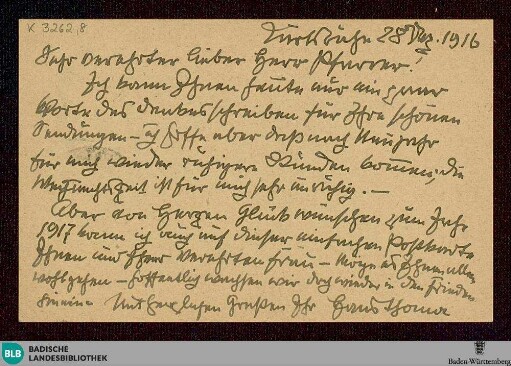 K 3262,8
Karlsruhe 28 Dez. 1916
Sehr verehrter lieber Herr Pfarrer!
Ich kann Ihnen heute nur ein paar
Worte des Dankes schreiben für Ihre schönen
Sendungen – ich hoffe aber daß nach Neujahr
für mich wieder ruhigere Stunden kommen, die
Weihnachtszeit ist für mich sehr unruhig. –
Aber von Herzen Glück wünschen zum Jahr
1917 kann ich auch auf dieser einfachen Postkarte
Ihnen und Ihrer verehrten Frau – Möge es Ihnen allen
wohl gehen – hoffentlich wachsen wir doch wieder in den Frieden
hinein – Mit herzlichen Grüßen Ihr Hans Thoma
BLB BADISCHE
LANDESBIBLIOTHEK
Baden-Württemberg